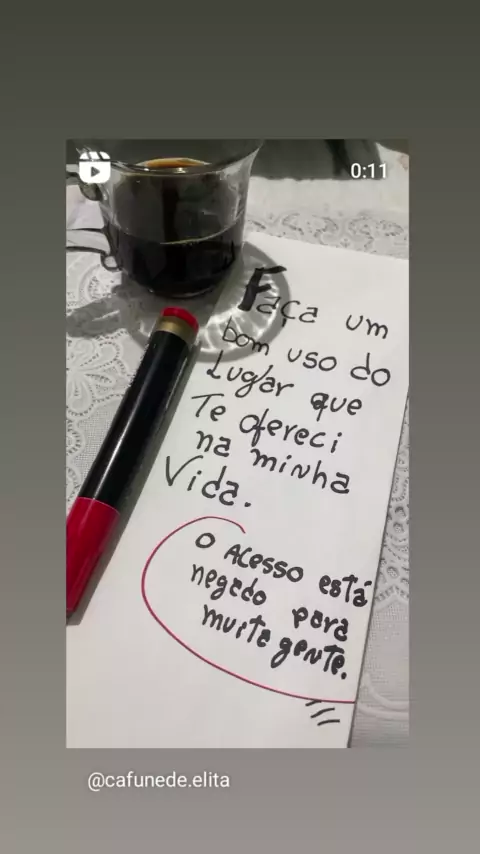 0:11
Faça um
bom uso do
Lugar que
Te ofereci
na minha
Vida.
O Acesso está
negado para
muita gente.
@cafunede.elita